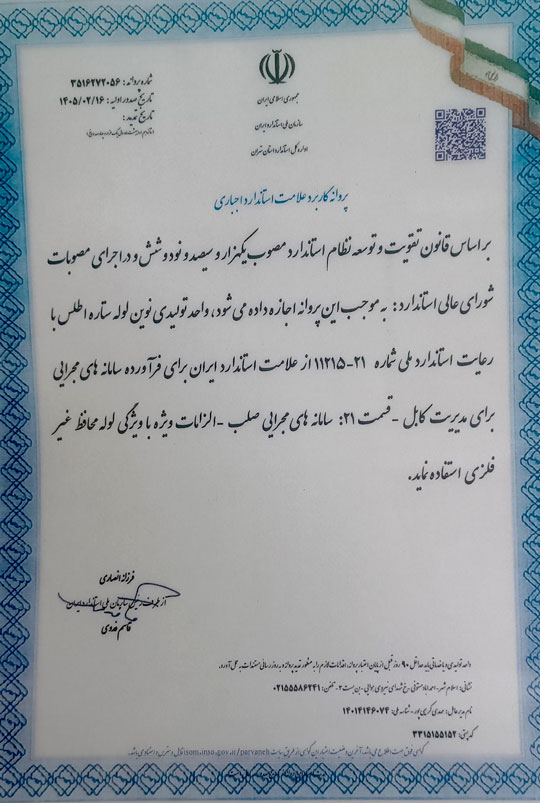 جمهوری اسلامی ایران
سازمان ملی استاندارد ایران
اداره کل استاندارد استان تهران
شماره پروانه: ۳۵۱۶۲۷۲۰۵۶
تاریخ صدور اولیه: ۱۴۰۵/۰۲/۱۶
تاریخ تمدید:
پروانه کاربرد علامت استاندارد اجباری
بر اساس قانون تقویت و توسعه نظام استاندارد مصوب یکهزار و سیصد و نود و شش و در اجرای مصوبات
شورای عالی استاندارد: به موجب این پروانه اجازه داده می شود، واحد تولیدی نوین لوله ستاره اطلس با
رعایت استاندارد ملی شماره ۲۱-۱۱۲۱۵ از علامت استاندارد ایران برای فرآورده سامانه های مجرایی
برای مدیریت کابل -قسمت ۲۱: سامانه های مجرایی صلب -الزامات ویژه با ویژگی لوله محافظ غیر
فلزی استفاده نماید.
فرزانه انصاری
از طرف رییس سازمان ملی استاندارد ایران
قاسم
واحد تولیدی و یا خدماتی باید حداقل ۹۰ روز قبل از پایان اعتبار پروانه، اقدامات لازم را به منظور تمدید پروانه و به روز رسانی مستندات به عمل آورد.
نشانی: اسلام شهر- احمدآباد مستوفی- خ شهدای نیروی هوایی- بن بست ۲- تلفن: ۰۲۱۵۵۵۸۶۲۴۱
نام مدیرعامل: مهدی کریم پور- شناسه ملی: ۱۴۰۱۴۱۴۶۰۷۴
کد پستی: ۳۳۱۵۱۵۵۱۵۲